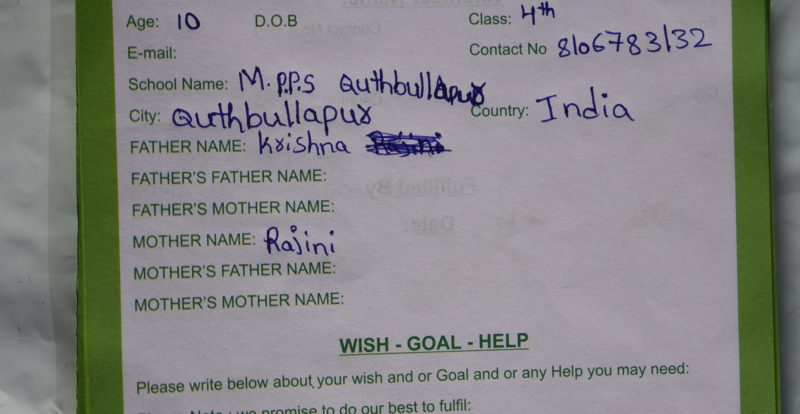 Age: 10 D.O.B Class: 4th
E-mail: Contact No 8106783132
School Name: M.P.P.S Quthbullapur
City: Quthbullapur Country: India
FATHER NAME: Krishna
FATHER'S FATHER NAME:
FATHER'S MOTHER NAME:
MOTHER NAME: Rajini
MOTHER'S FATHER NAME:
MOTHER'S MOTHER NAME:
WISH - GOAL - HELP
Please write below about your wish and or Goal and or any Help you may need:
Note : we promise to do our best to fulfil: